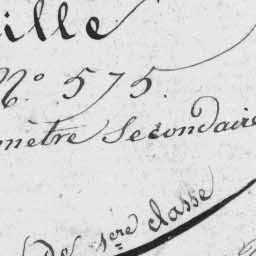 ille
N° 575.
mètre Secondaire
de 1ère classe